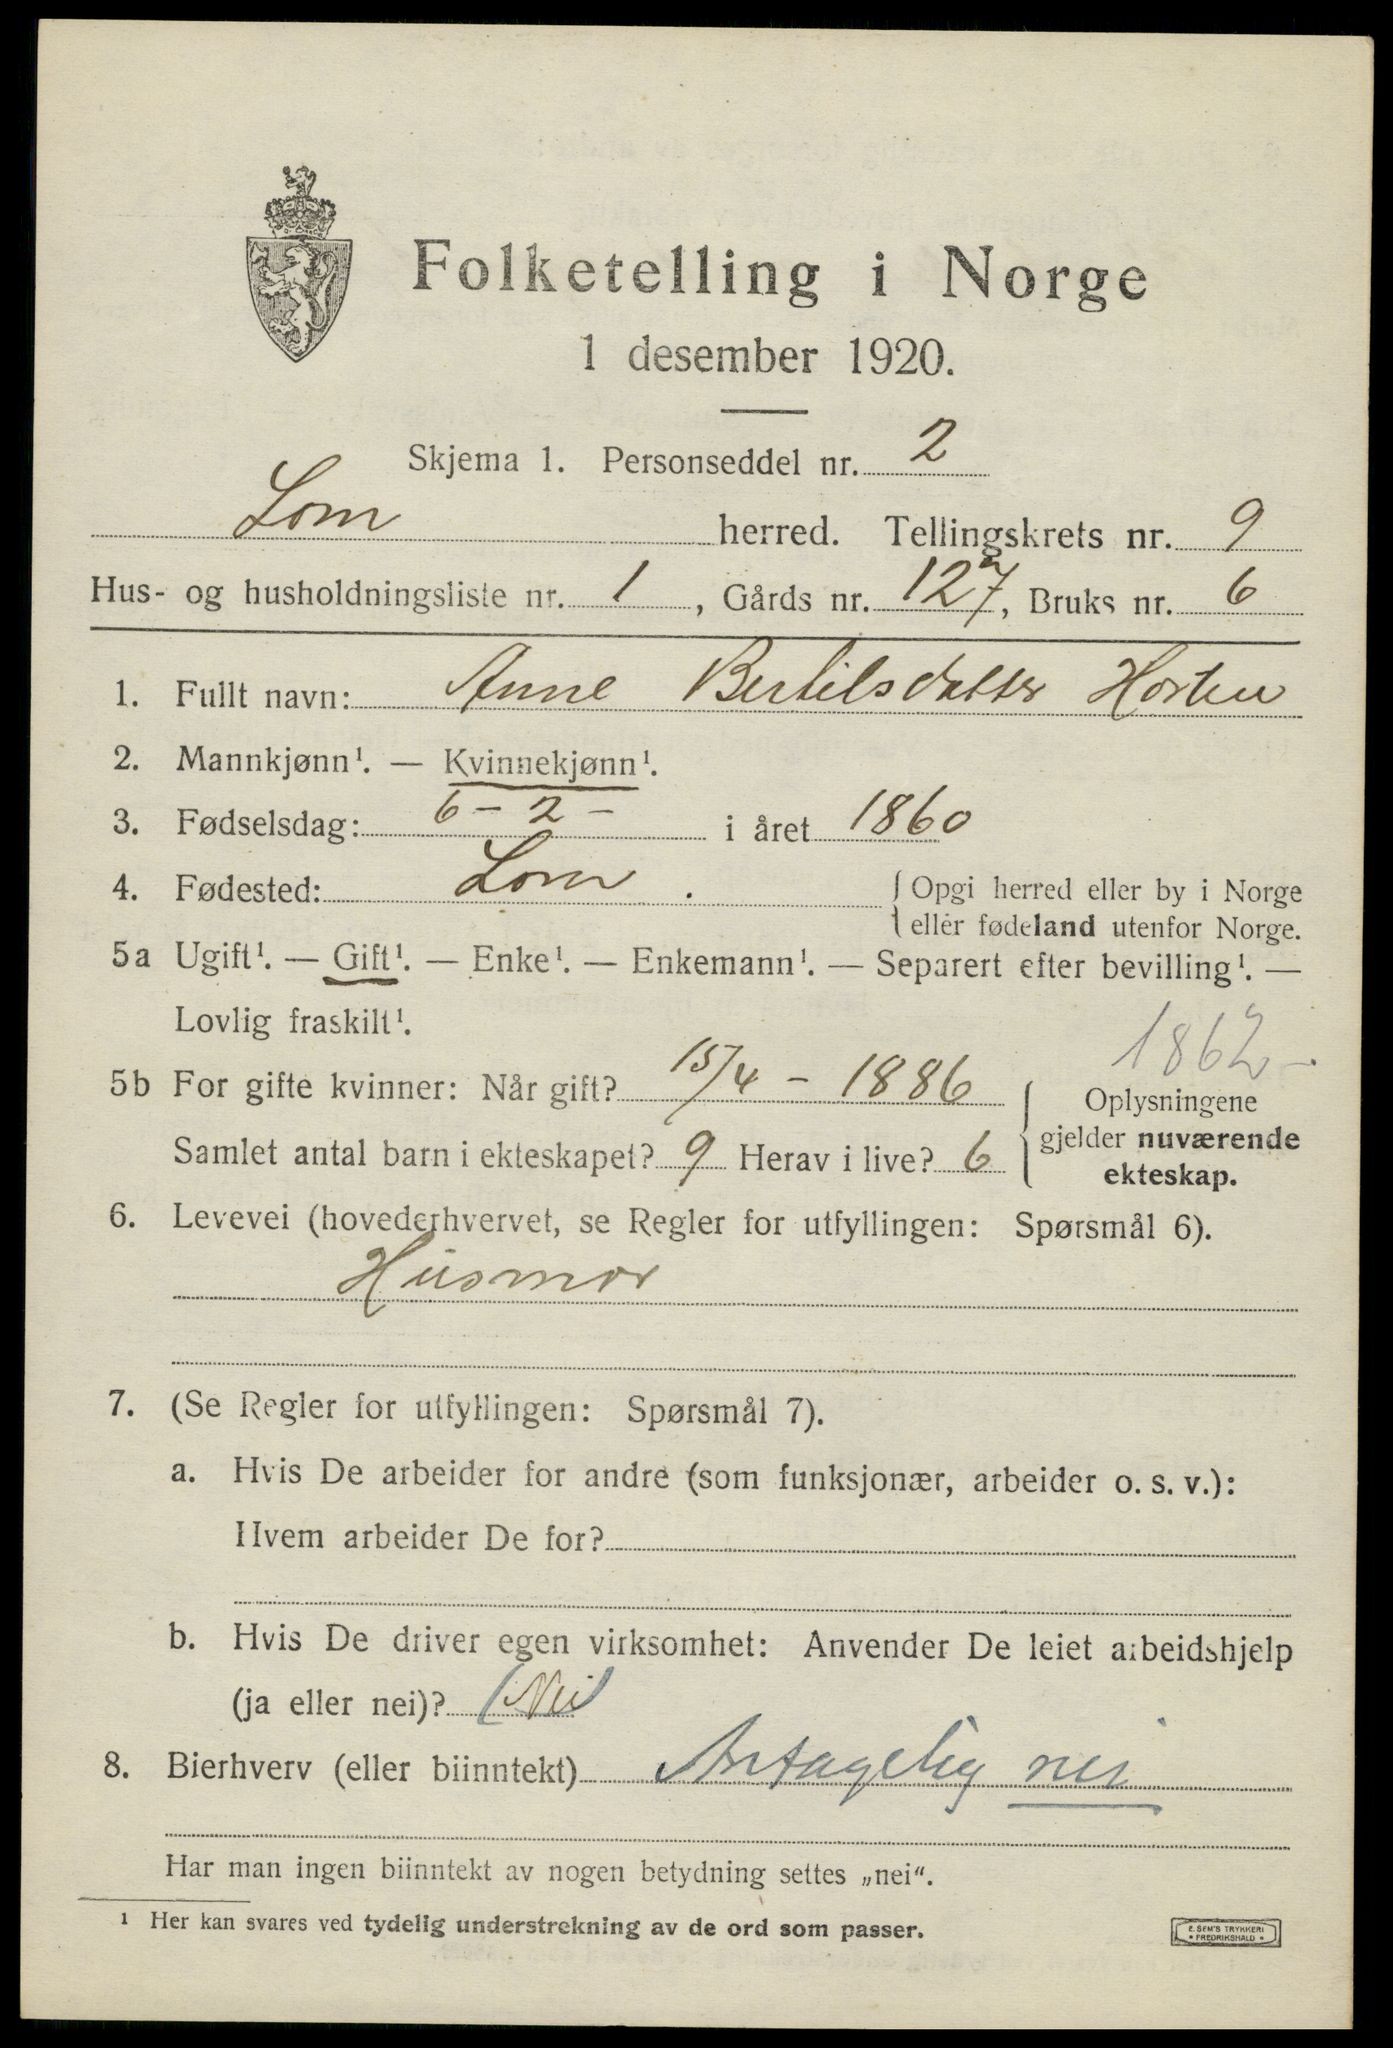 Folketelling i Norge
1 desember 1920.
Skjema 1. Personseddel nr. 2
Lom herred. Tellingskrets nr. 9
Hus- og husholdningsliste nr. 1, Gårds nr. 127, Bruks nr. 6
1. Fullt navn: Anne Bertilsdatter Horten
2. Mannkjønn¹. — Kvinnekjønn¹.
3. Fødselsdag: 6 - 2 - i året 1860
4. Fødested: Lom. { Opgi herred eller by i Norge
eller fødeland utenfor Norge.
5a Ugift¹. — Gift¹. — Enke¹. — Enkemann¹. — Separert efter bevilling¹. —
Lovlig fraskilt¹.
1862 -
5b For gifte kvinner: Når gift? 15/4 - 1886 { Oplysningene
gjelder nuværende
ekteskap.
Samlet antal barn i ekteskapet? 9 Herav i live? 6
6. Levevei (hovederhvervet, se Regler for utfyllingen: Spørsmål 6).
Husmor
7. (Se Regler for utfyllingen: Spørsmål 7).
a. Hvis De arbeider for andre (som funksjonær, arbeider o. s. v.):
Hvem arbeider De for?
b. Hvis De driver egen virksomhet: Anvender De leiet arbeidshjelp
(ja eller nei)? (Nei)
8. Bierhverv (eller biinntekt) Antagelig nei
Har man ingen biinntekt av nogen betydning settes „nei“.
¹ Her kan svares ved tydelig understrekning av de ord som passer.
E. SEM'S TRYKKERI
* FREDRIKSHALD *